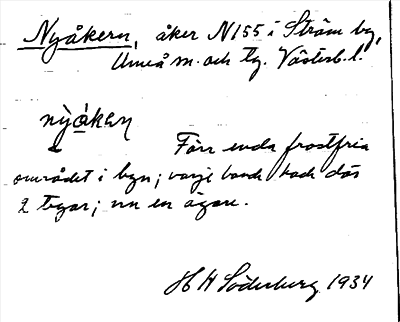 Nyåkern, åker N155 i Ström by,
Umeå m. och tg. Västerb. l.
nỳåkɐṇ
Förr enda frostfria
området i byn; varje bonde hade där
2 tegar; nu en ägare.
H H Söderberg 1934